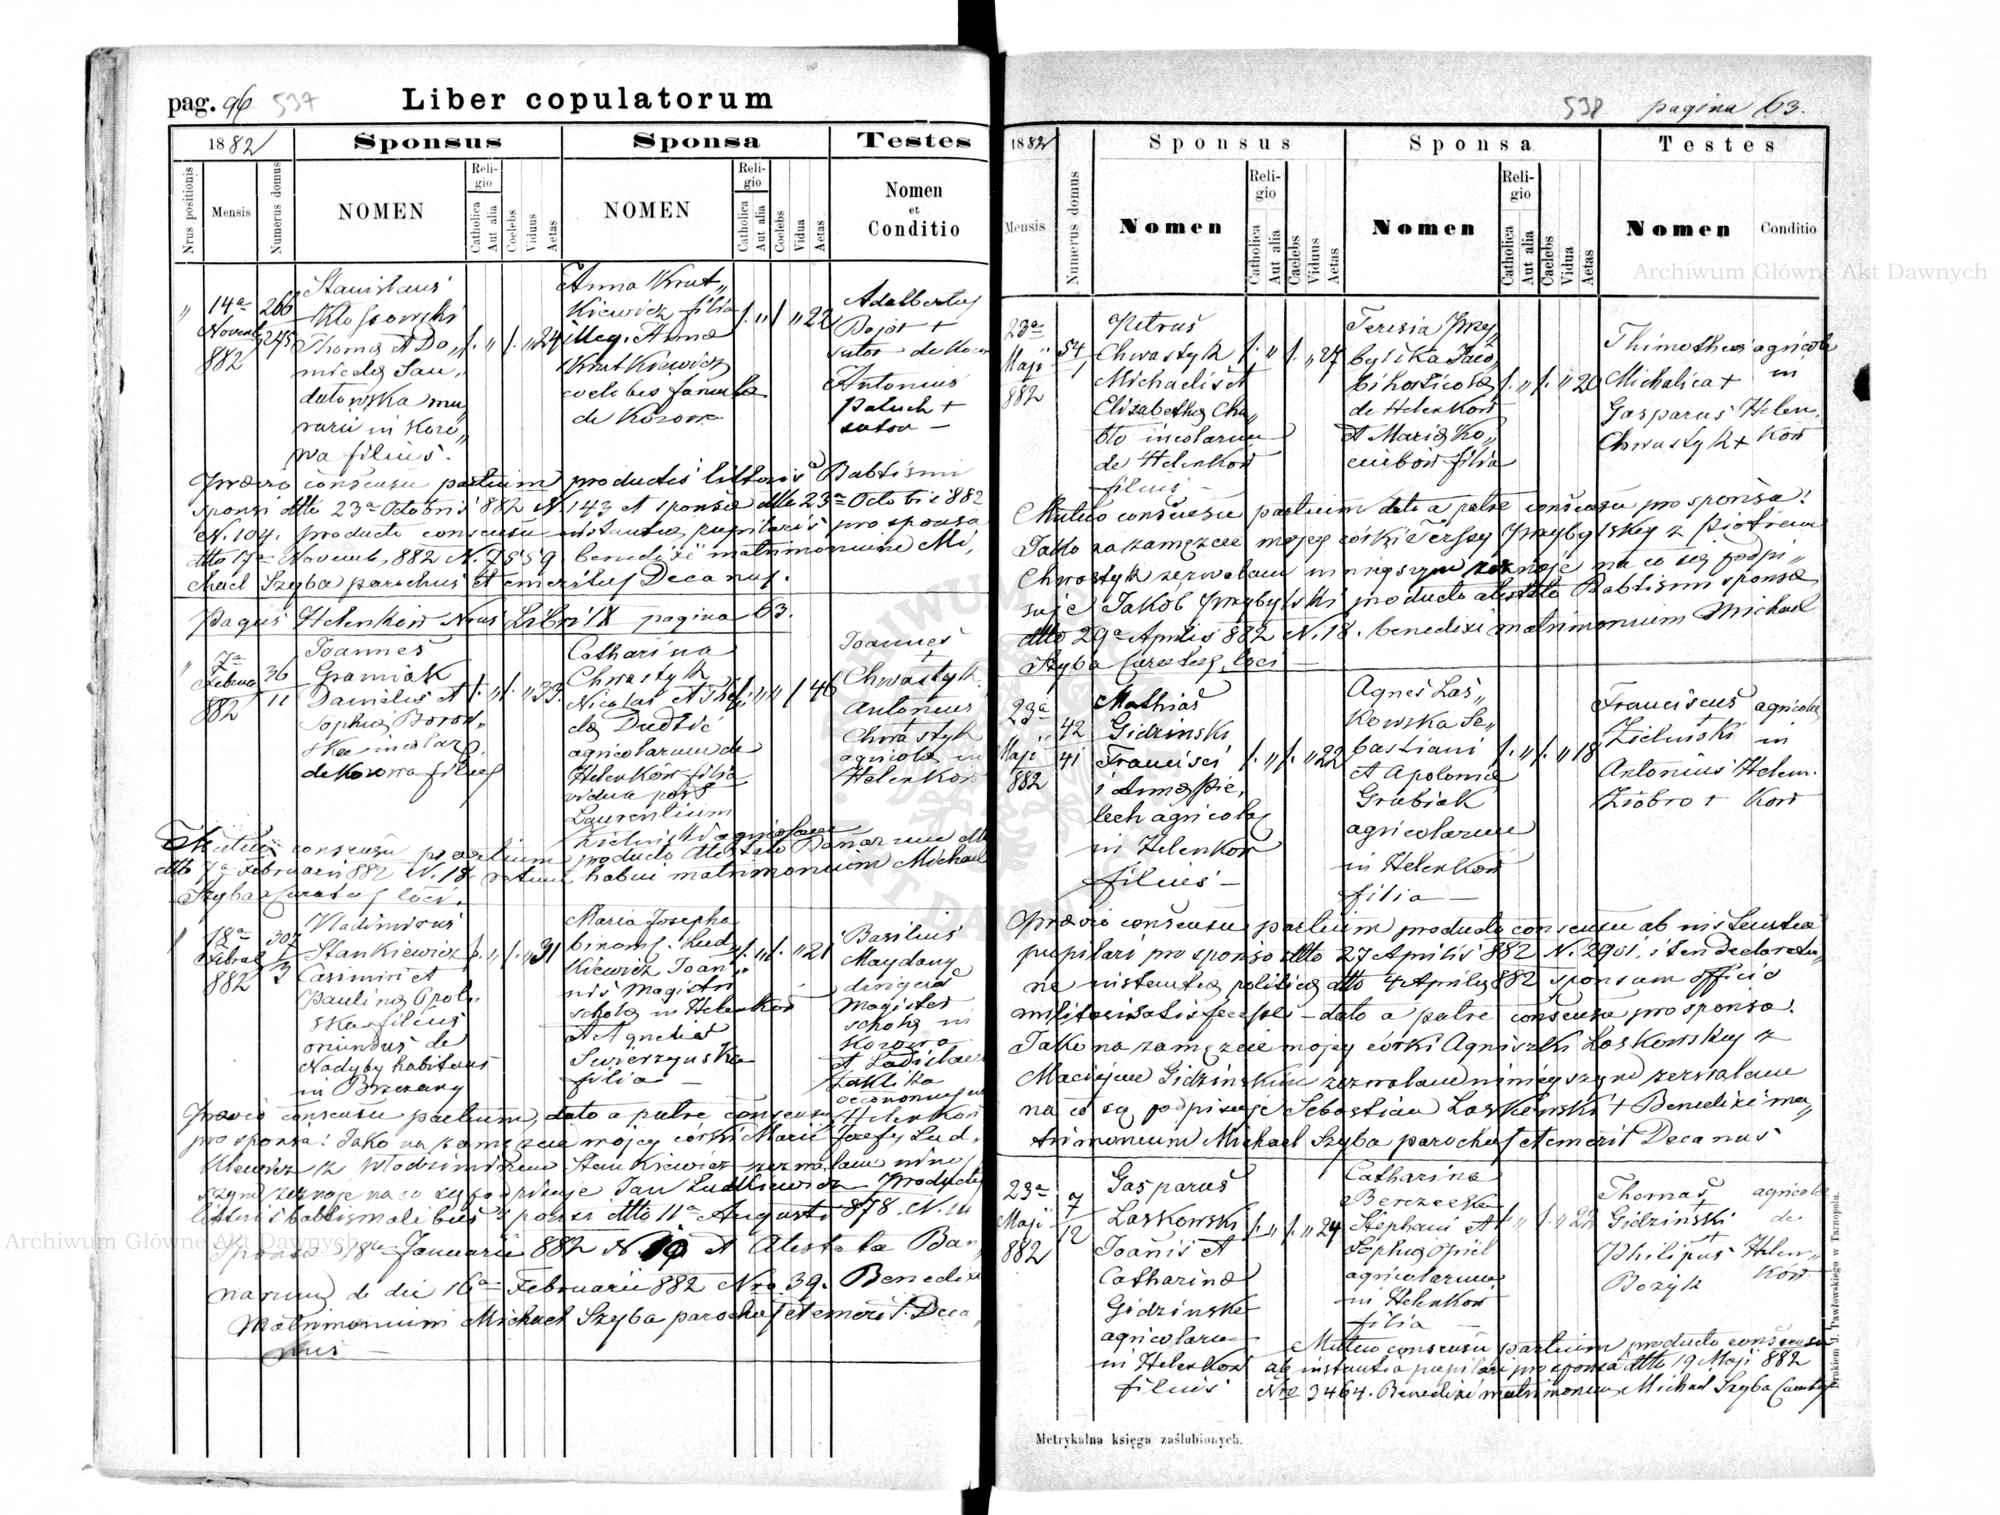 pag. 96 537 Liber copulatorum
1882
Sponsus Sponsa Testes
Nrus positionis
Mensis
Numerus domus
NOMEN
Religio
Catholica
Aut alia
Coelebs
Viduus
Aetas
NOMEN
Religio
Catholica
Aut alia
Coelebs
Vidua
Aetas
Nomen
et
Conditio
14a
Novemb
882
266
245
Stanislaus
Kłossowski
Thoma et Do„
micela San„
datowska mu„
rarii in Kozo„
wa filius.
24
Anna Krut„
Kiewicz filia
illeg. Anna
Krutkiewicz
coelebis famula
de Kozowa
22
Adalbertus
Bojór +
sutor de Kozow
Antonius
Paluch +
sutor —
Praevio consensu partium productis litteris Babtismi
sponsi dtto 23a Octobris 882 N. 143 et sponsa dtto 23a Octobris 882
N. 104. producto consensu instantia pupilaris pro sponsa
dtto 17a Novemb. 882 N. 7559. benedixi matrimonium Mi„
chael Szyba parochus et emeritus Decanus.
Pagus Helenków Nrus Libri IX pagina 63.
7a
Februa
882
36
11
Joannes
Graniak
Danielis et
Sophia Borow„
ska incolar.
de Kozowa filius
33
Catharina
Chwastyk
Nicolai et The„
da Dudzic
agricolarum de
Helenków filia
vidua post
Laurentium
Zieliński agricolam
46
Joannes
+
Chwastyk
Antonius
Chwastyk
agricola in
Helenków
Mutuo consensu partium producto Atestato Banarum dtto
dtto 7a Februarii 882 N. 18 ratum habui matrimonium Michael
Szyba Curatus loci.
18a
Februa
882
307
1
3
Vladimirus
Stankiewicz
Casimiri et
Paulina Opol„
ska filius
oriundus de
Nadyby habitans
in Brzezany
31
Maria Josepha
binom. Lud„
Kiewicz Joan„
nis Magistri
schola in Helenków
et Agnetis
Swierzynska
filia —
21
Basilius
Maydany
dirigens
Magister
schola in
Kozowa
et Ladislaus
Zaklika
oeconomus in
Helenków
Praevio consensu partium, dato a patre consensu
pro sponsa: Jako na zamęzcie mojej córki Marii Józefy Lud„
Kiewicz z Włodzimirzem Stankiewicz zezwalam niniej
szym zeznaje na co się podpisuje Jan Ludkiewicz Productis
litteris babtismalibus sponsi dtto 11a Augusti 878. N. 111
Sponsa 18a Januarii 882 N. 19 et Atestato Ban„
narum de die 16a Februarii 882 Nro 39. Benedixi
Matrimonium Michael Szyba parochus et emerit. Deca
nus —
538 pagina 63.
1882
Sponsus Sponsa Testes
Mensis
Numerus domus
Nomen
Religio
Catholica
Aut alia
Caelebs
Viduus
Aetas
Nomen
Religio
Catholica
Aut alia
Caelebs
Vidua
Aetas
Nomen
Conditio
23a
Maji
882
54
1
Petrus
Chwastyk
Michaelis et
Elisabetha Chu„
bło incolarum
de Helenków
filius —
27
Teresia Przy„
bylska Jaco„
bi horticola
de Helenków
et Maria Ko„
ciubów filia
20
Thimotheus
Michalica +
Gasparus
Chwastyk +
agricola
in
Helen„
ków
Mutuo consensu partium dato a patre consensu pro sponsa:
Jako na zamęzcie mojej córki Teresy Przybylskej z Piotrem
Chwastyk zezwalam niniejszym zeznaję na co się podpi„
suje Jakób Przybylski producto atestato Babtismi sponsa
dtto 29a Aprilis 882 N. 18. benedixi matrimonium Michael
Szyba Curatus loci —
23a
Maji
882
42
41
Mathias
Gidzinski
Francisci
i Anna Pie„
lech agricola
in Helenków
filius —
22
Agnes Las„
Kowska Se„
bastiani
et Apolonia
Grabiak
agricolarum
in Helenków
filia —
18
Franciscus
+
Zieliński
Antonius
Ziobro +
agricola
in
Helen„
ków
Praevio consensu partium producto consensu ab instantia
pupilari pro sponso dtto 27 Aprilis 882 N. 2901. item declaratio„
ne instantia politica dtto 4 Aprilis 882 sponsum officio
militari satisfecisse — dato a patre consensu pro sponsa:
Jako na zamęzcie mojej córki Agniszki Laskowskej z
Maciejem Gidzinskim zezwalam niniejszym zezwalam
na co się podpisuje Sebastian Laskowski + Benedixi ma„
trimonium Michael Szyba parochus et emerit Decanus
23a
Maji
882
7
12
Gasparus
Laskowski
Joanis et
Catharina
Gidzinska
agricolarum
in Helenków
filius
24
Catharina
Berezecka
Stephani et
Sophia Opiel
agricolarum
in Helenków
filia —
22
Thomas
+
Gidzinski
+
Philipus
Bozyk
agricola
de
Helen„
ków
Mutuo consensu partium producto consensu
ab instantia pupilari pro sponsa dtto 19 Maji 882
Nro 3464. Benedixi matrimonium Michael Szyba Curatus
Metrykalna księga zaślubionych.
Drukiem J. Pawłowskiego w Tarnopolu.
Archiwum Główne Akt Dawnych
Archiwum Główne Akt Dawnych